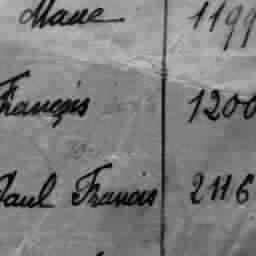 Marie 1199
François 1200
Paul Francis 2116